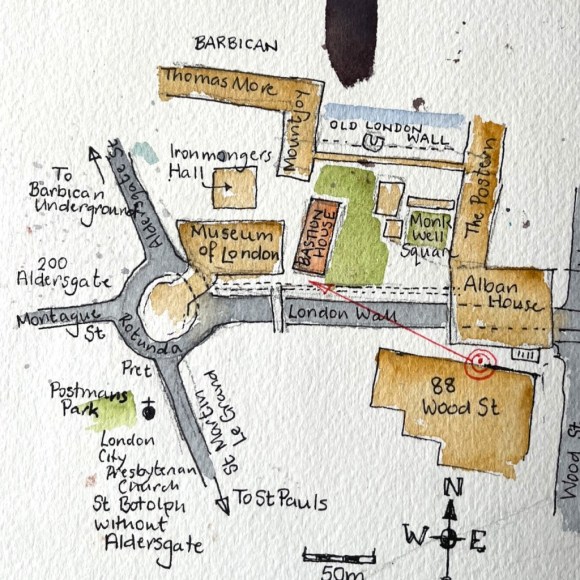 BARBICAN
Thomas More
Mountjoy
OLD LONDON
WALL
Ironmongers
Hall
The Postern
To
Barbican
Underground
Aldersgate St
Museum
of London
BASTION
HOUSE
Monk
Well
Square
200
Aldersgate
Alban
House
Montague
St
Rotunda
London Wall
Pret
88
Wood St
Postmans
Park
St Martin
Le Grand
Wood St
London
City
Presbyterian
Church
St Botolph
without
Aldersgate
To St Pauls
N
W E
50m